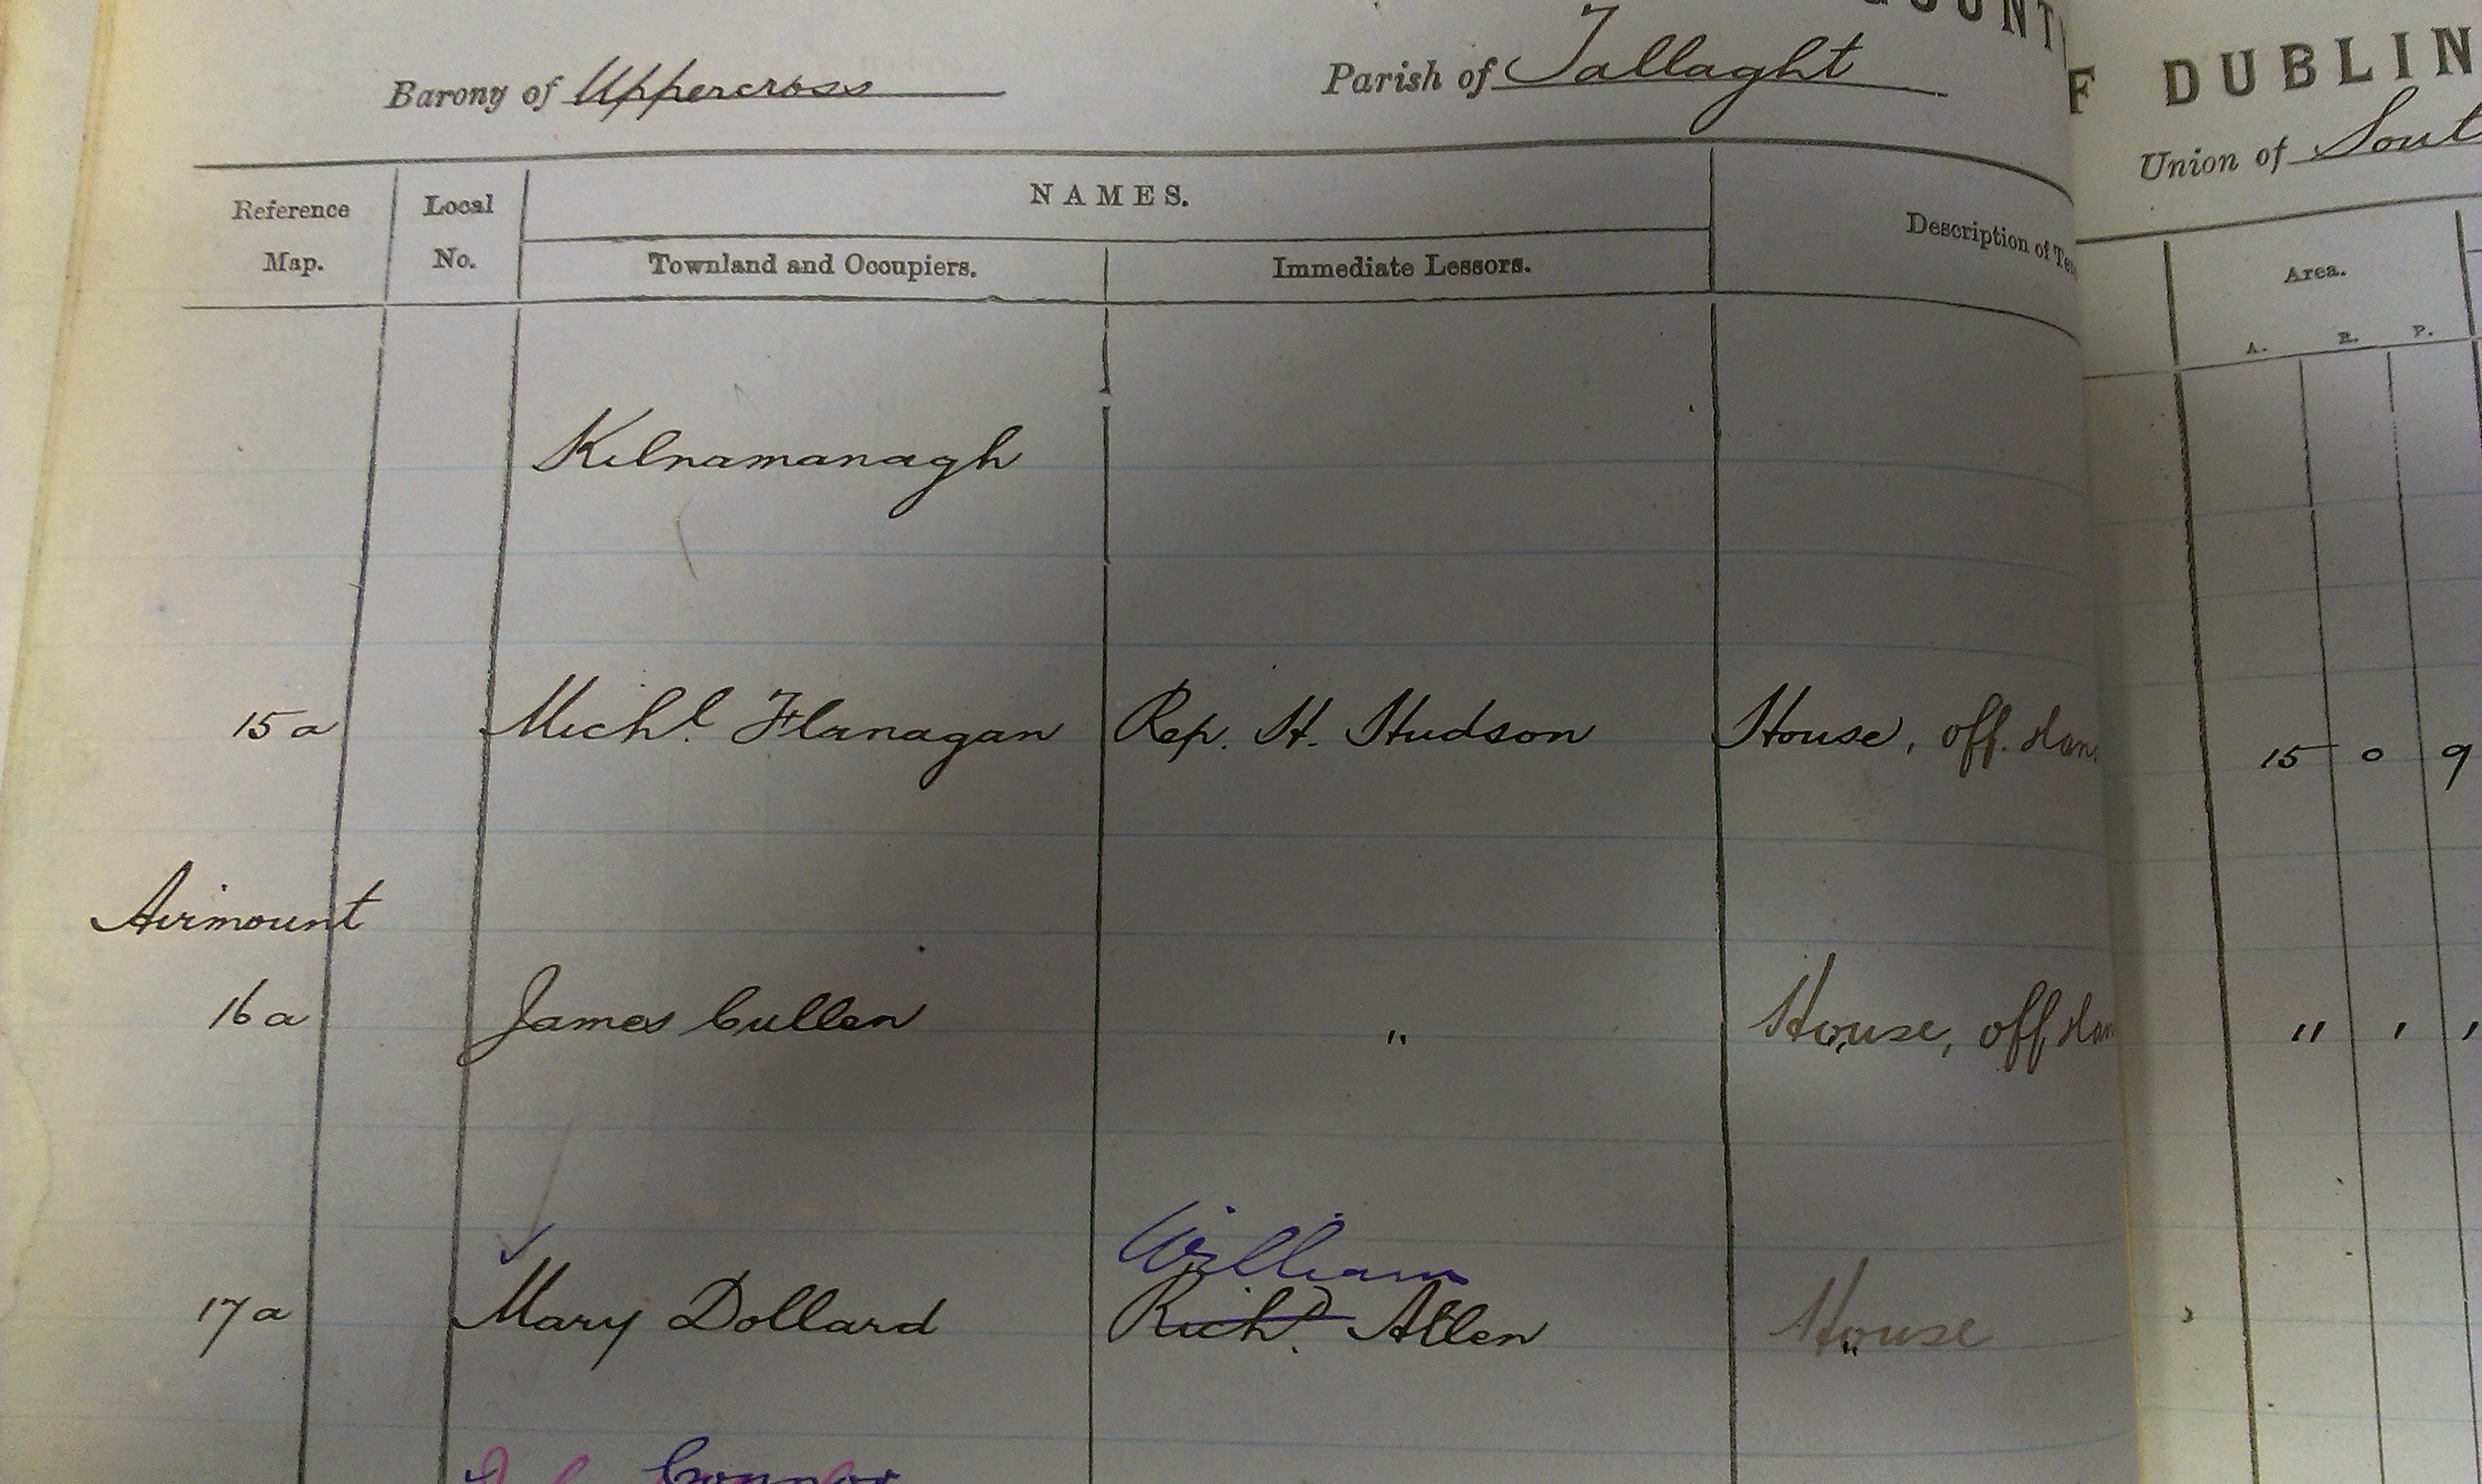 COUNTY
OF DUBLIN
Barony of Uppercross
Parish of Tallaght
Union of Sout
Reference Map.
Local No.
NAMES.
Townland and Occupiers.
Immediate Lessors.
Description of Te
Area.
A. R. P.
Kilnamanagh
15a Michl. Flanagan Rep. H. Hudson House, off. lan 15 0 9
Airmount
16a James Cullen " House, off. lan " , ,
William
17a Mary Dollard Richd. Allen House
Connor